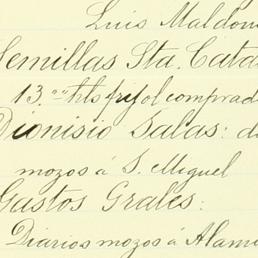 Luis Maldon
Semillas Sta. Cata
13.00 hls frijol comprad
Dionisio Salas: d
mozos á S. Miguel
Gastos Grales:
Diarios mozos á Alam